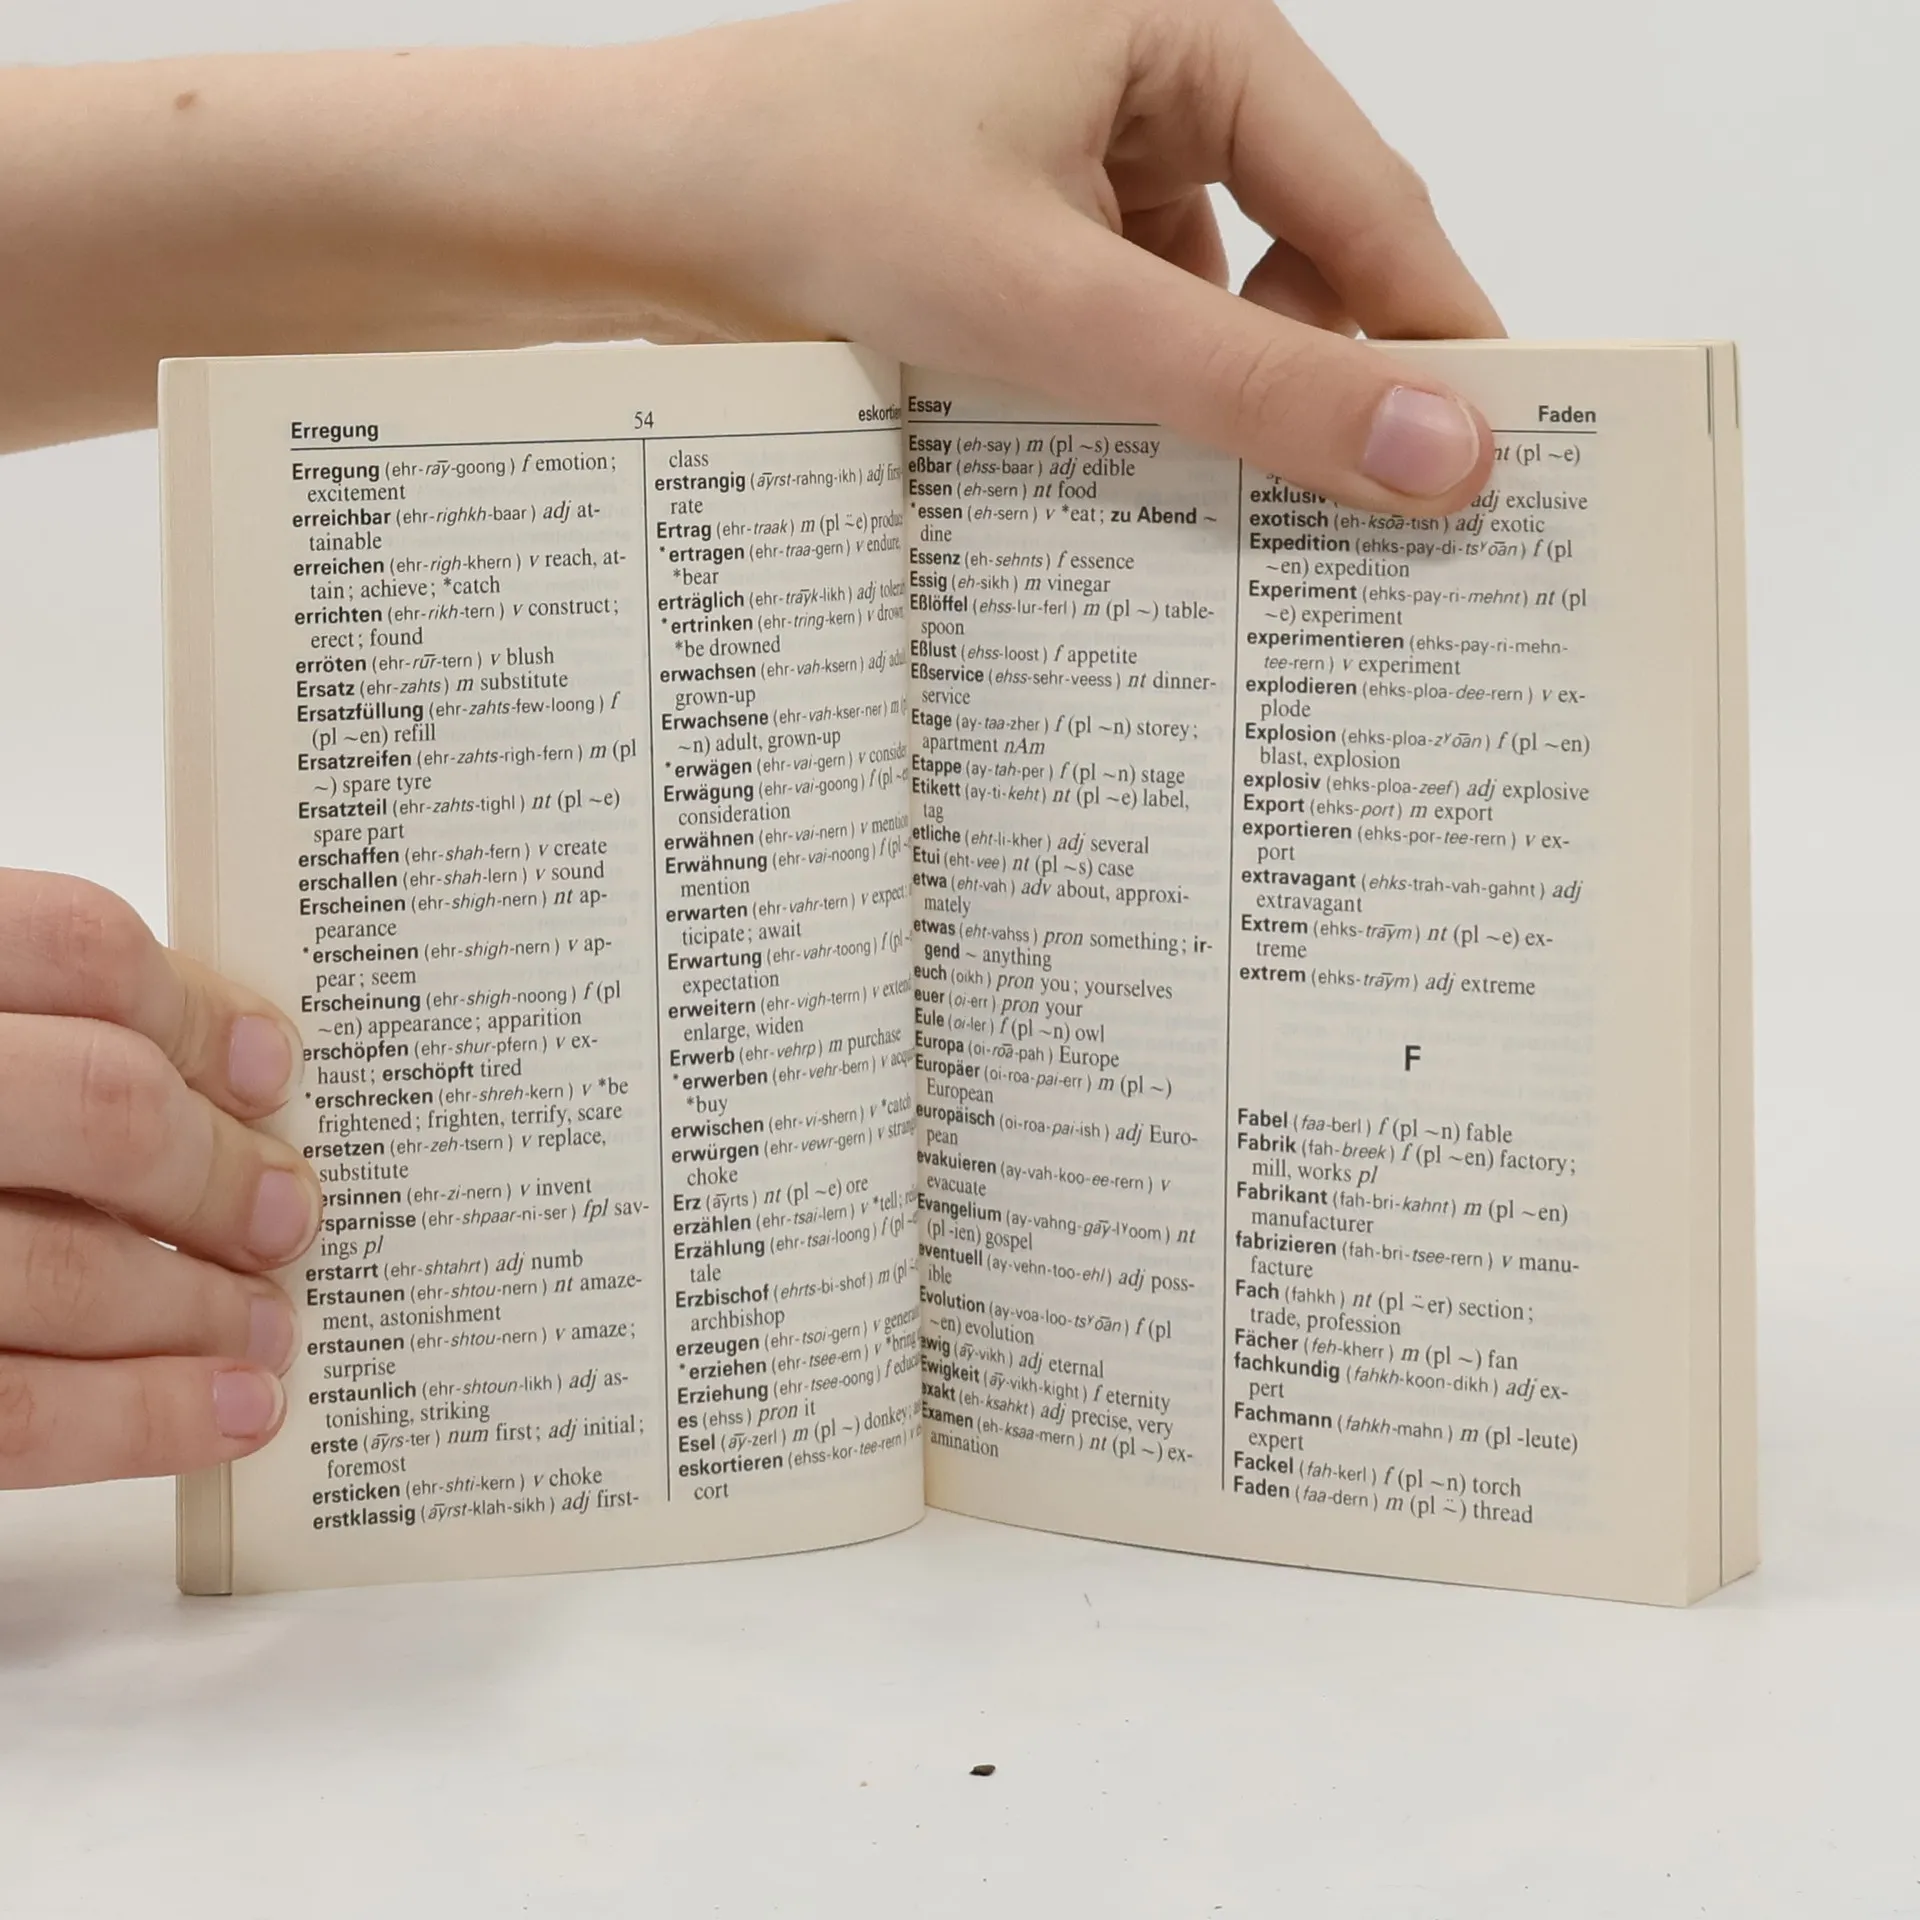 Erregung 54
Erregung (ehr-rāy-goong) f emotion;
excitement
erreichbar (ehr-righkh-baar) adj at-
tainable
erreichen (ehr-righ-khern) v reach, at-
tain; achieve; *catch
errichten (ehr-rikh-tern) v construct;
erect; found
erröten (ehr-rūr-tern) v blush
Ersatz (ehr-zahts) m substitute
Ersatzfüllung (ehr-zahts-few-loong) f
(pl ~en) refill
Ersatzreifen (ehr-zahts-righ-fern) m (pl
~) spare tyre
Ersatzteil (ehr-zahts-tighl) nt (pl ~e)
spare part
erschaffen (ehr-shah-fern) v create
erschallen (ehr-shah-lern) v sound
Erscheinen (ehr-shigh-nern) nt ap-
pearance
*erscheinen (ehr-shigh-nern) v ap-
pear; seem
Erscheinung (ehr-shigh-noong) f (pl
~en) appearance; apparition
erschöpfen (ehr-shur-pfern) v ex-
haust; erschöpft tired
*erschrecken (ehr-shreh-kern) v *be
frightened; frighten, terrify, scare
ersetzen (ehr-zeh-tsern) v replace,
substitute
ersinnen (ehr-zi-nern) v invent
(ehr-shpaar-ni-ser) fpl sav-
ings pl
erstarrt (ehr-shtahrt) adj numb
Erstaunen (ehr-shtou-nern) nt amaze-
ment, astonishment
erstaunen (ehr-shtou-nern) v amaze;
surprise
erstaunlich (ehr-shtoun-likh) adj as-
tonishing, striking
erste (āyrs-ter) num first; adj initial;
foremost
ersticken (ehr-shti-kern) v choke
erstklassig (āyrst-klah-sikh) adj first-
class
erstrangig (āyrst-rahng-ikh) adj
rate
Ertrag (ehr-traak) m (pl ¨~e)
*ertragen (ehr-traa-gern) v endure,
*bear
erträglich (ehr-trāyk-likh) adj
*ertrinken (ehr-tring-kern) v
*be drowned
erwachsen (ehr-vah-ksern) adj
grown-up
Erwachsene (ehr-vah-kser-ner) m
~n) adult, grown-up
*erwägen (ehr-vai-gern) v
Erwägung (ehr-vai-goong) f (pl
consideration
erwähnen (ehr-vai-nern) v
Erwähnung (ehr-vai-noong) f (pl
mention
erwarten (ehr-vahr-tern) v expect;
ticipate; await
Erwartung (ehr-vahr-toong) f (pl
expectation
erweitern (ehr-vigh-terrn) v
enlarge, widen
Erwerb (ehr-vehrp) m purchase
*erwerben (ehr-vehr-bern) v
*buy
erwischen (ehr-vi-shern) v *catch
erwürgen (ehr-vewr-gern) v
choke
Erz (āyrts) nt (pl ~e) ore
erzählen (ehr-tsai-lern) v *tell;
Erzählung (ehr-tsai-loong) f (pl
tale
Erzbischof (ehrts-bi-shof) m (pl
archbishop
erzeugen (ehr-tsoi-gern) v
*erziehen (ehr-tsee-ern) v *bring
Erziehung (ehr-tsee-oong) f
es (ehss) pron it
Esel (āy-zerl) m (pl ~) donkey;
eskortieren (ehss-kor-tee-rern) v
cort
Essay Faden
Essay (eh-say) m (pl ~s) essay
eßbar (ehss-baar) adj edible
Essen (eh-sern) nt food
*essen (eh-sern) v *eat; zu Abend ~
dine
Essenz (eh-sehnts) f essence
Essig (eh-sikh) m vinegar
Eßlöffel (ehss-lur-ferl) m (pl ~) table-
spoon
Eßlust (ehss-loost) f appetite
Eßservice (ehss-sehr-veess) nt dinner-
service
Etage (ay-taa-zher) f (pl ~n) storey;
apartment nAm
Etappe (ay-tah-per) f (pl ~n) stage
Etikett (ay-ti-keht) nt (pl ~e) label,
tag
etliche (eht-li-kher) adj several
Etui (eht-vee) nt (pl ~s) case
etwa (eht-vah) adv about, approxi-
mately
etwas (eht-vahss) pron something; ir-
gend ~ anything
euch (oikh) pron you; yourselves
euer (oi-err) pron your
Eule (oi-ler) f (pl ~n) owl
Europa (oi-rōā-pah) Europe
Europäer (oi-roa-pai-err) m (pl ~)
European
europäisch (oi-roa-pai-ish) adj Euro-
pean
evakuieren (ay-vah-koo-ee-rern) v
evacuate
Evangelium (ay-vahng-gāy-lʸoom) nt
(pl -ien) gospel
eventuell (ay-vehn-too-ehl) adj poss-
ible
Evolution (ay-voa-loo-tsʸōān) f (pl
~en) evolution
ewig (āy-vikh) adj eternal
Ewigkeit (āy-vikh-kight) f eternity
exakt (eh-ksahkt) adj precise, very
Examen (eh-ksaa-mern) nt (pl ~) ex-
amination
nt (pl ~e)
exklusiv adj exclusive
exotisch (eh-ksōā-tish) adj exotic
Expedition (ehks-pay-di-tsʸōān) f (pl
~en) expedition
Experiment (ehks-pay-ri-mehnt) nt (pl
~e) experiment
experimentieren (ehks-pay-ri-mehn-
tee-rern) v experiment
explodieren (ehks-ploa-dee-rern) v ex-
plode
Explosion (ehks-ploa-zʸōān) f (pl ~en)
blast, explosion
explosiv (ehks-ploa-zeef) adj explosive
Export (ehks-port) m export
exportieren (ehks-por-tee-rern) v ex-
port
extravagant (ehks-trah-vah-gahnt) adj
extravagant
Extrem (ehks-trāym) nt (pl ~e) ex-
treme
extrem (ehks-trāym) adj extreme
F
Fabel (faa-berl) f (pl ~n) fable
Fabrik (fah-breek) f (pl ~en) factory;
mill, works pl
Fabrikant (fah-bri-kahnt) m (pl ~en)
manufacturer
fabrizieren (fah-bri-tsee-rern) v manu-
facture
Fach (fahkh) nt (pl ¨~er) section;
trade, profession
Fächer (feh-kherr) m (pl ~) fan
fachkundig (fahkh-koon-dikh) adj ex-
pert
Fachmann (fahkh-mahn) m (pl -leute)
expert
Fackel (fah-kerl) f (pl ~n) torch
Faden (faa-dern) m (pl ¨~) thread